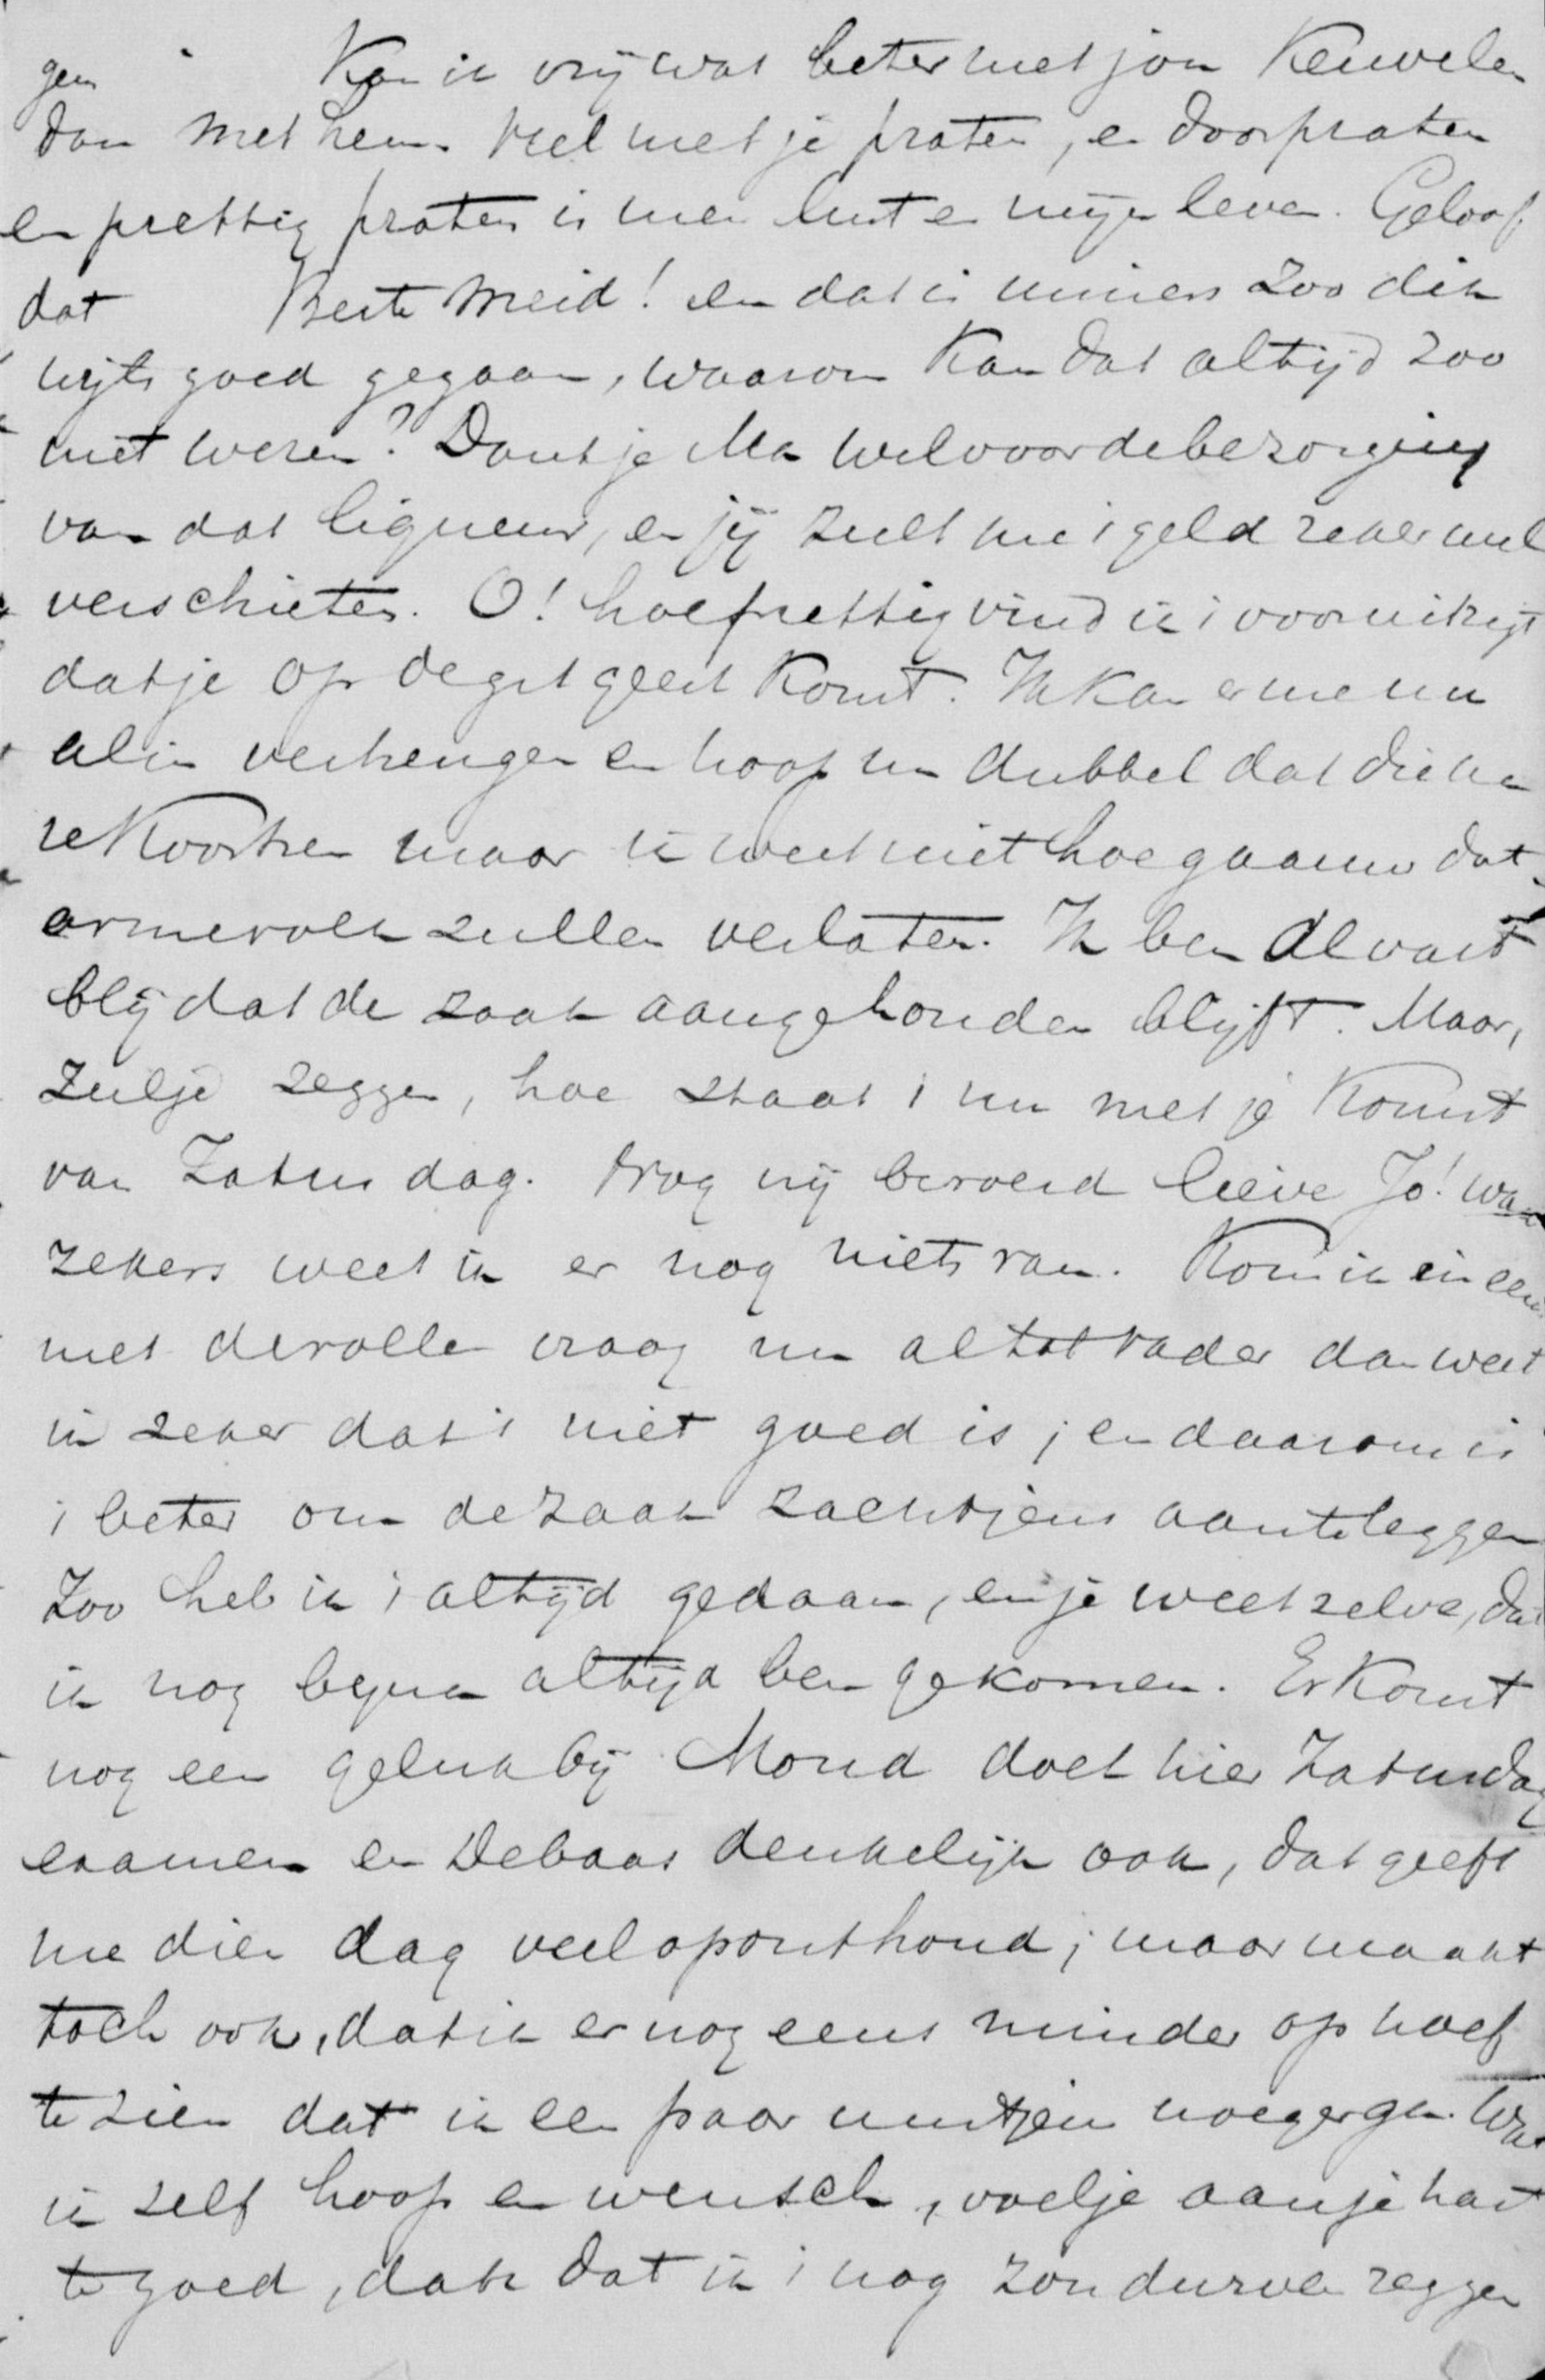 gen Kan ik vrij wat beter met jou Keuvelen
dan met hem. Veel met je praten, en doorpraten
en prettig praten is mijn lust en mijn leven. Geloof
dat Beste meid! en dat is immers zoo dik
wijls goed gegaan, waarom kan dat altijd zoo
niet wezen? Dank je Ma wel voor de bezorging
van dat liqueur, en jij zult me 't geld zeker wel
verschieten. O! hoe prettig vind ik 't vooruitzigt
dat je op de gst geest komt. Ik kan er me nu
al in verheugen en hoop nu dubbel dat die
ze Koortsen maar ik weet niet hoe gaauw dat
arme volk zullen verlaten. Ik ben alvast
blij dat de zaak aangehouden blijft. Maar,
zulje zeggen, hoe staat 't nu met je Komst
van Zaturdag. Nog vrij beroerd lieve Jo! wan
zekers weet ik er nog niets van. Kom ik in eens
met de volle vraag nu al tot Vader dan weet
ik zeker dat 't niet goed is; en daarom is
't beter om de zaak zachtjens aanteleggen
Zoo heb ik 't altijd gedaan, en je weet zelve, dat
ik nog bijna altijd ben gekomen. Er Komt
nog een geluk bij. Mond doet hier Zaturdag
examen en Debaas denkelijk ook, dat geeft
me dien dag veel oponthoud; maar maakt
toch ook, dat ik er nog eens minder op hoef
te zien dat ik een paar uurtjen vroeger ga. Wat
ik zelf hoop en wensch, voelje aan je hart
te goed, dan dat ik 't nog zou durven zeggen